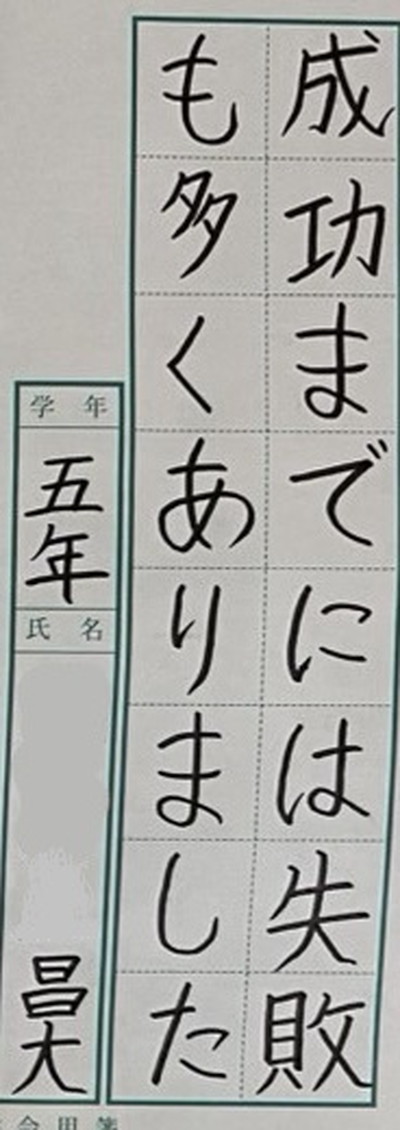 成功までには失敗
も多くありました
学年
五年
氏名
昌大